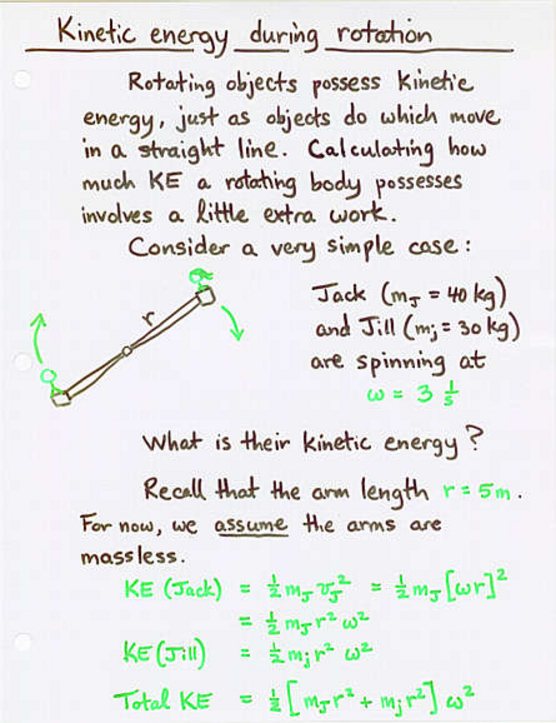 Kinetic energy during rotation
Rotating objects possess kinetic
energy, just as objects do which move
in a straight line. Calculating how
much KE a rotating body possesses
involves a little extra work.
Consider a very simple case:
r
Jack (m_J = 40 kg)
and Jill (m_j = 30 kg)
are spinning at
ω = 3 1/s
What is their kinetic energy?
Recall that the arm length r = 5m.
For now, we assume the arms are
massless.
KE (Jack) = ½ m_J v_J² = ½ m_J [ωr]²
= ½ m_J r² ω²
KE (Jill) = ½ m_j r² ω²
Total KE = ½ [m_J r² + m_j r²] ω²